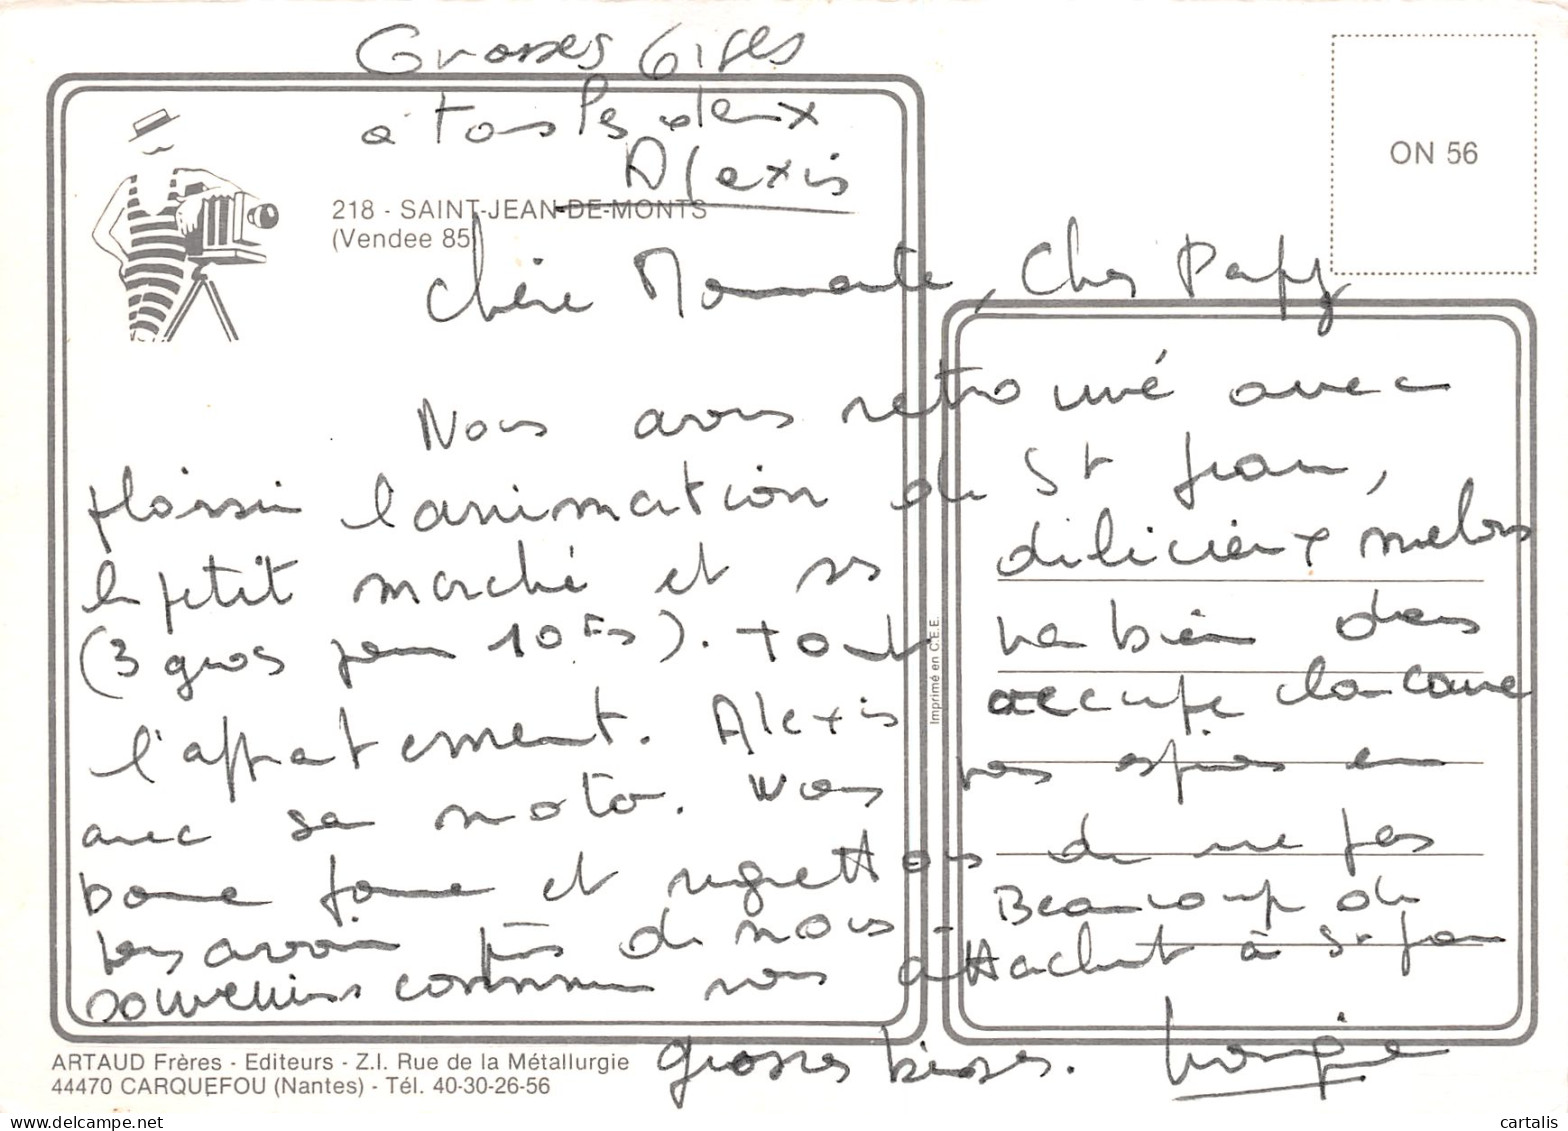 Grosses bises
à tous les deux
Alexis
218 - SAINT-JEAN-DE-MONTS
(Vendee 85)
ON 56
Chère Mamante, Cher Papy
Nous avons retrouvé avec
plaisir l'animation de St Jean,
le petit marché et ses délicieux melons
(3 gros pour 10Fs). Tout va bien dans
l'appartement. Alexis occupe la cour
avec sa moto. Nous vous espérons en
bonne forme et regrettons de ne pas
vous avoir près de nous. Beaucoup de
souvenirs communs nous attachent à St Jean
grosses bises.
Imprimé en C.E.E.
ARTAUD Frères - Editeurs - Z.I. Rue de la Métallurgie
44470 CARQUEFOU (Nantes) - Tél. 40-30-26-56